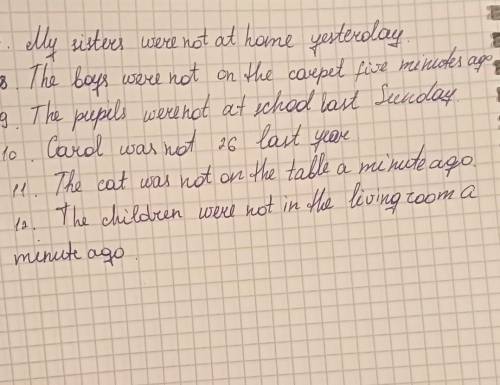 . My sisters were not at home yesterday.
8. The boys were not on the carpet five minutes ago
9. The pupils were not at school last Sunday.
10. Carol was not 26 last year
11. The cat was not on the table a minute ago.
12. The children were not in the living room a
minute ago.